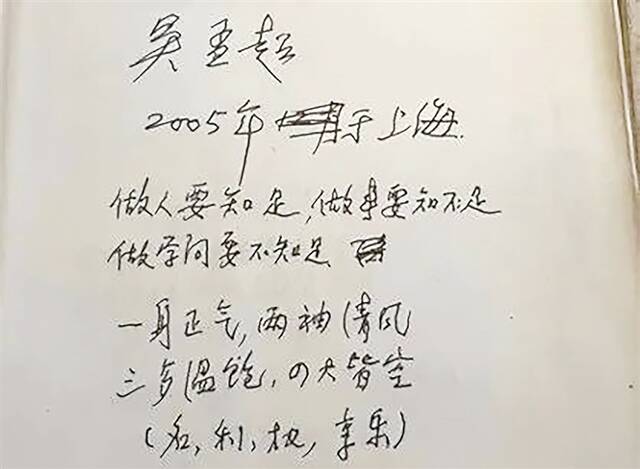 吴孟超
2005年 于上海.
做人要知足,做事要知不足
做学问要不知足
一身正气,两袖清风
三歺温饱,四大皆空
(名,利,权,享乐)